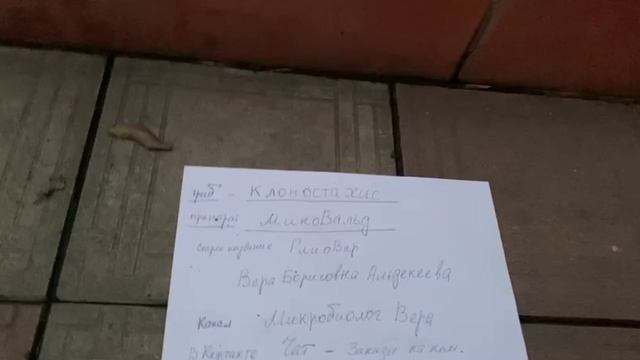 гриб - Клоностахис
препарат МикоВальд
Старое название ГлиоВир
Вера Борисовна Альдекеева
Канал Микробиолог Вера
ВКонтакте Чат - Заказы на